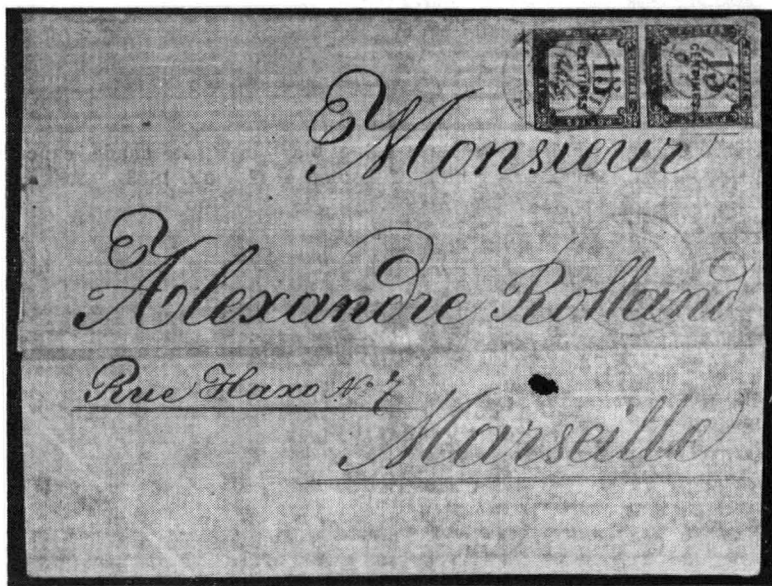 15 15
CENTIMES CENTIMES
Monsieur
Alexandre Rolland
Rue Haxo No 7
Marseille